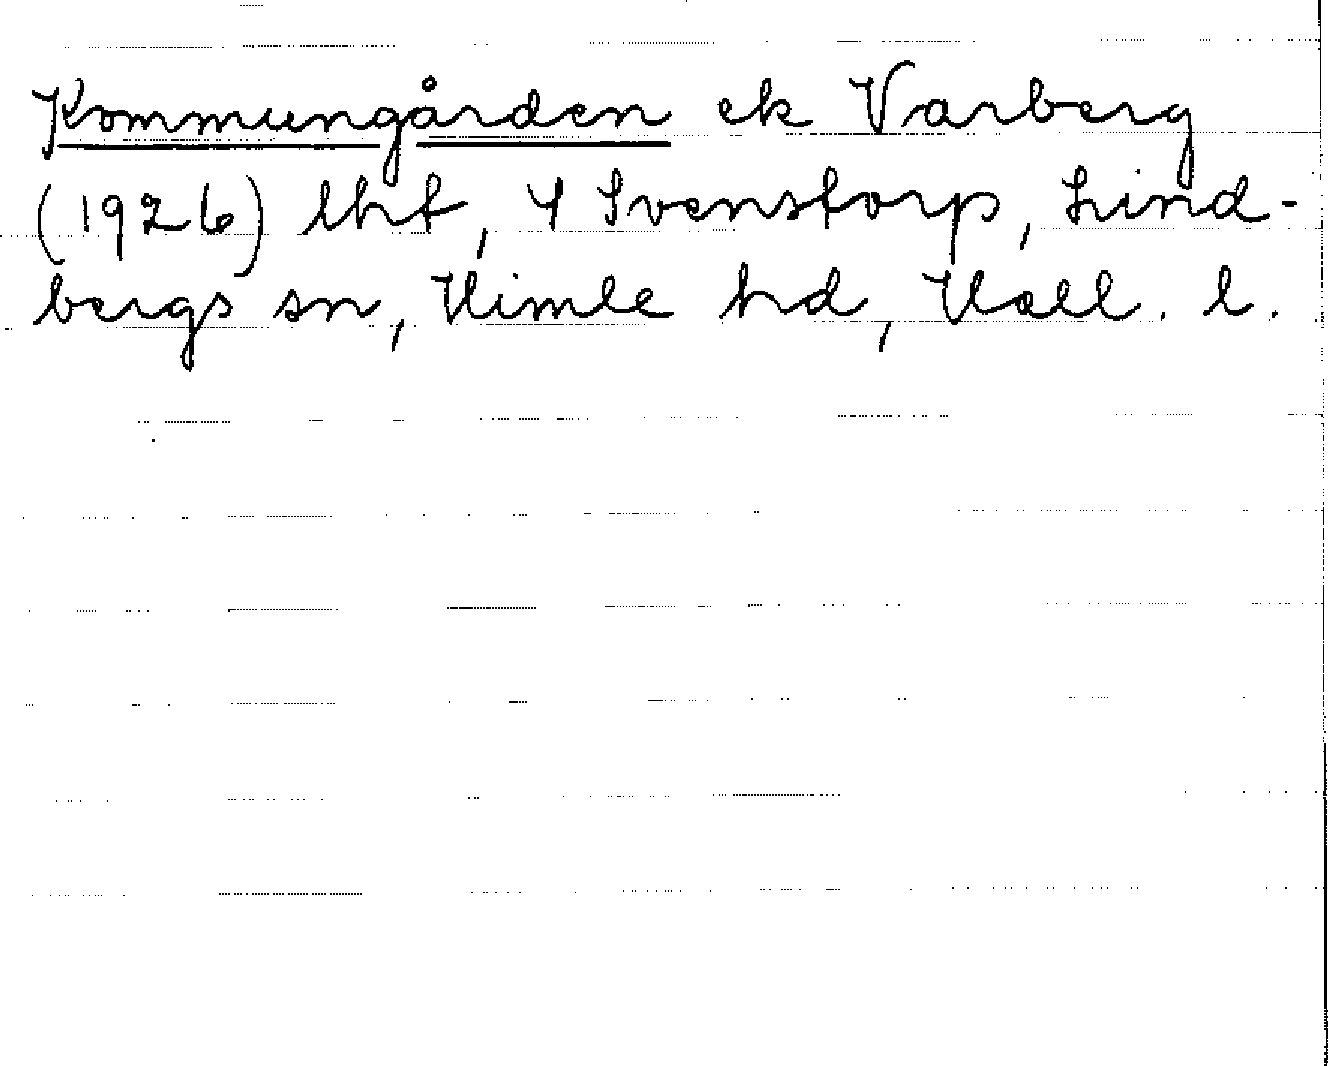 Kommungården ek Varberg
(1926) lht, 4 Svenstorp, Lind-
bergs sn, Himle hd, Hall. l.